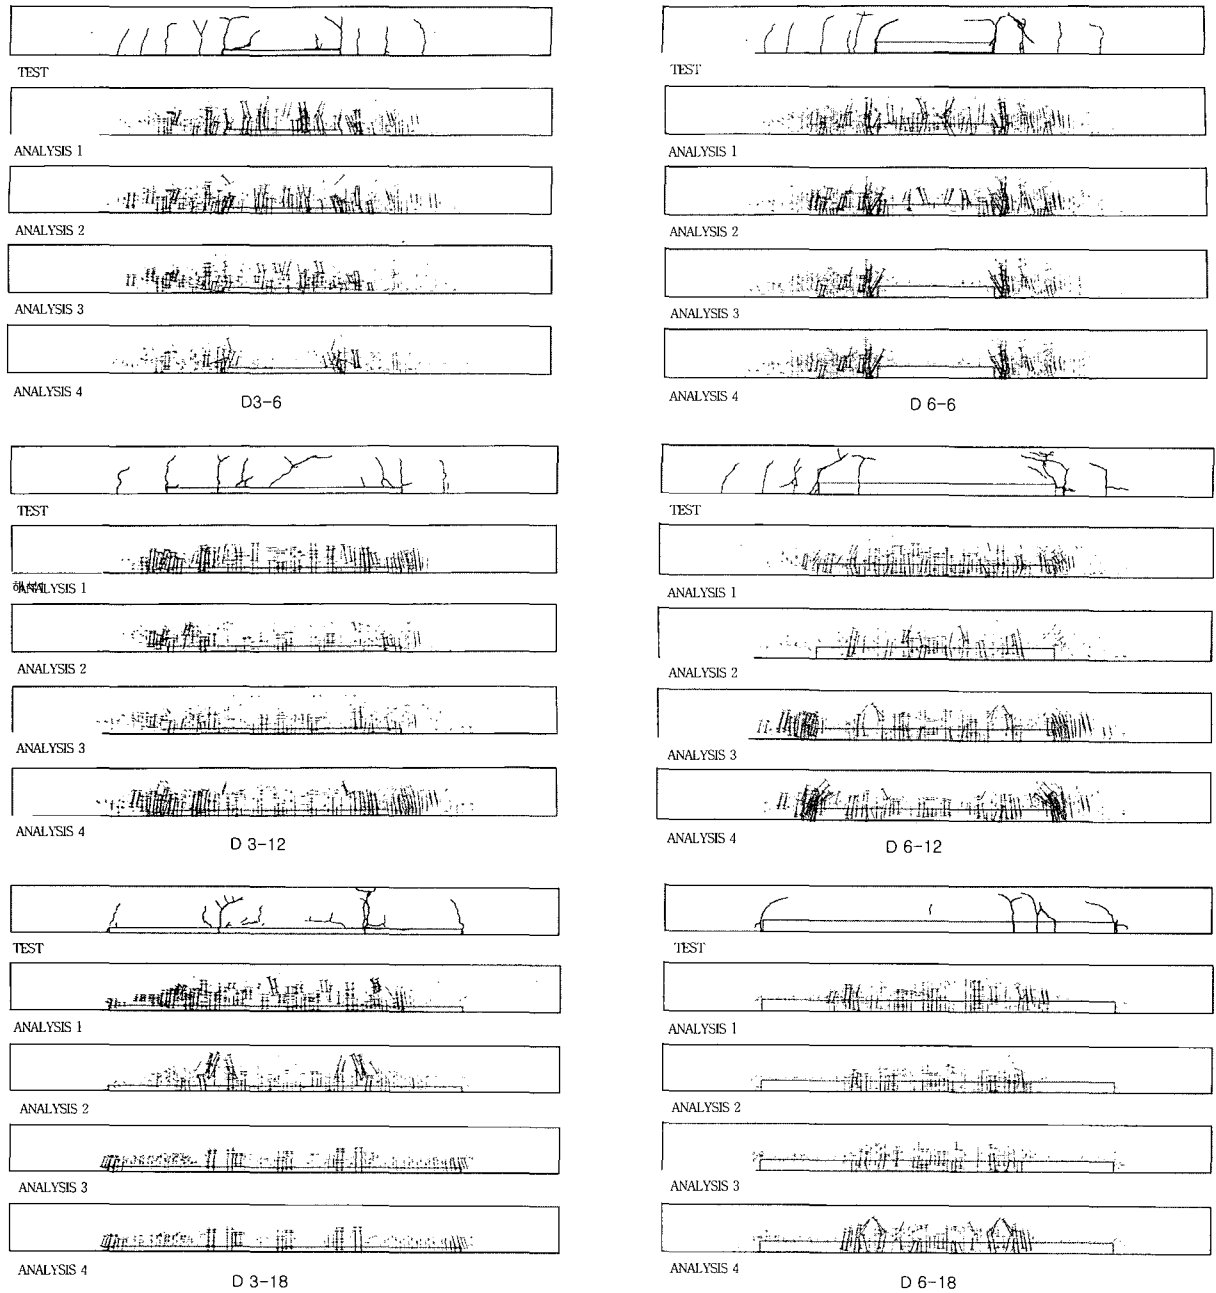 TEST
ANALYSIS 1
ANALYSIS 2
ANALYSIS 3
ANALYSIS 4
D3-6
TEST
ANALYSIS 1
ANALYSIS 2
ANALYSIS 3
ANALYSIS 4
D 6-6
TEST
ANALYSIS 1
ANALYSIS 2
ANALYSIS 3
ANALYSIS 4
D 3-12
TEST
ANALYSIS 1
ANALYSIS 2
ANALYSIS 3
ANALYSIS 4
D 6-12
TEST
ANALYSIS 1
ANALYSIS 2
ANALYSIS 3
ANALYSIS 4
D 3-18
TEST
ANALYSIS 1
ANALYSIS 2
ANALYSIS 3
ANALYSIS 4
D 6-18